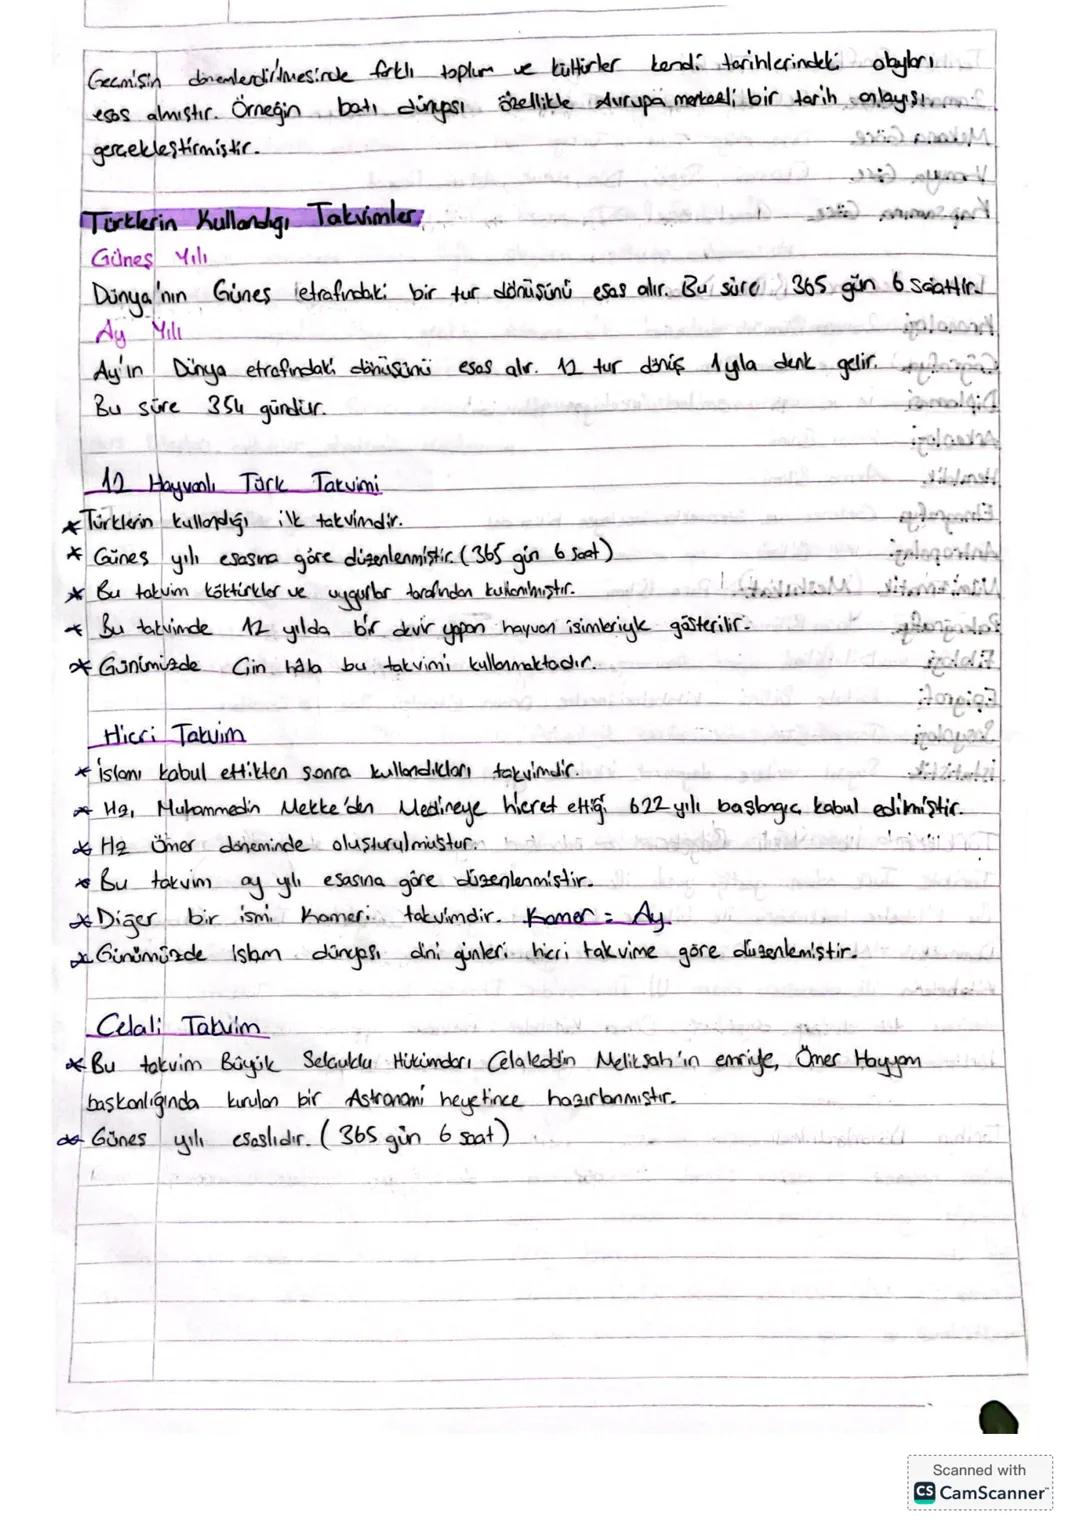 Geçmişin dönemlendirilmesinde farklı toplum ve kültürler kendi tarihlerindeki olayları
esas almıştır. Örneğin batı dünyası özellikle Avrupa merkezli bir tarih anlayışı
gerçekleştirmiştir.
Türklerin Kullandığı Takvimler
Güneş Yılı
Dünya'nın Güneş etrafındaki bir tur dönüşünü esas alır. Bu süre 365 gün 6 saattir.
Ay Yılı
Ay'ın Dünya etrafındaki dönüşünü esas alır. 12 tur dönüş 1 yıla denk gelir.
Bu süre 354 gündür.
12 Hayvanlı Türk Takvimi
* Türklerin kullandığı ilk takvimdir.
* Güneş yılı esasına göre düzenlenmiştir. (365 gün 6 saat)
* Bu takvim köktürkler ve uygurlar tarafından kullanılmıştır.
* Bu takvimde 12 yılda bir devir yapan hayvan isimleriyle gösterilir.
* Günümüzde Çin hâla bu takvimi kullanmaktadır.
Hicri Takvim
* İslamı kabul ettikten sonra kullandıkları takvimdir.
* Hz. Muhammedin Mekke'den Medineye hicret ettiği 622 yılı başlangıç kabul edilmiştir.
* Hz Ömer döneminde oluşturulmuştur.
* Bu takvim ay yılı esasına göre düzenlenmiştir.
* Diğer bir ismi Kameri takvimdir. Kamer = Ay
* Günümüzde İslam dünyası dini günleri hicri takvime göre düzenlemiştir.
Celali Takvim
* Bu takvim Büyük Selçuklu Hükümdarı Celaleddin Melikşah'ın emriyle, Ömer Hayyam
başkanlığında kurulan bir Astronomi heyetince hazırlanmıştır.
* Güneş yılı esaslıdır. (365 gün 6 saat)
Scanned with
CS CamScanner